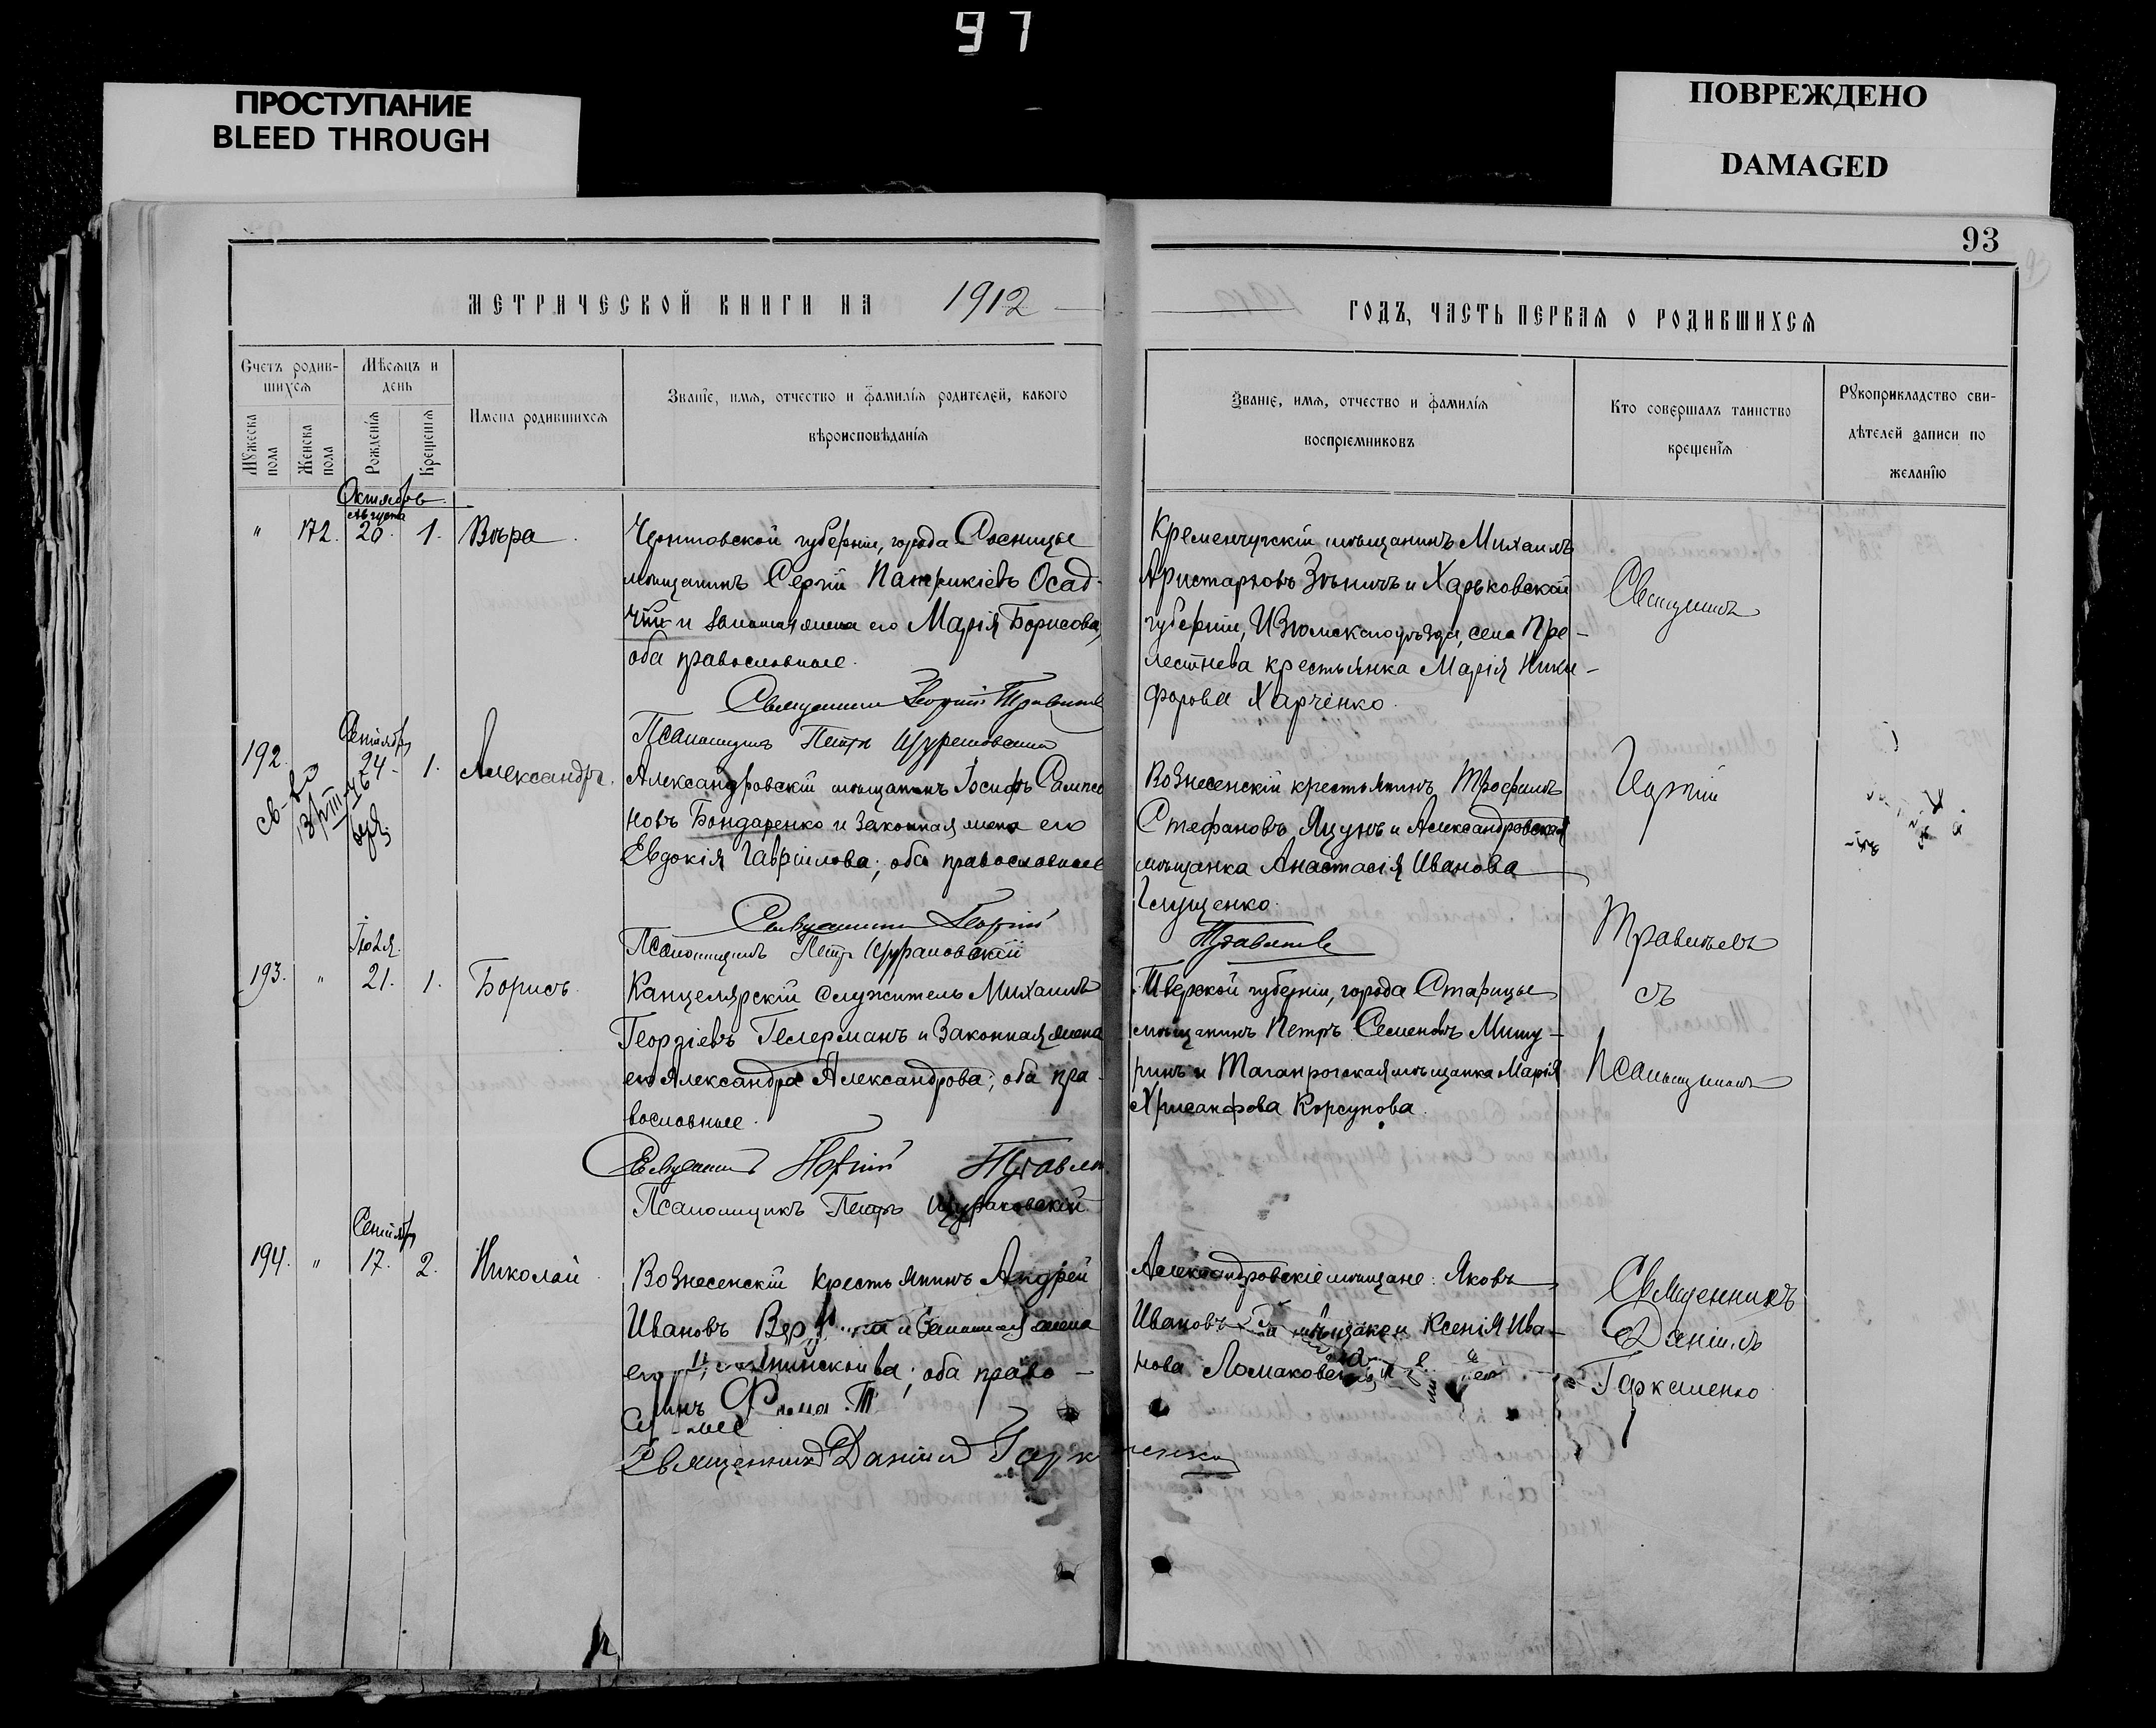 97
ПРОСТУПАНИЕ
BLEED THROUGH
ПОВРЕЖДЕНО
DAMAGED
93
МЕТРИЧЕСКОЙ КНИГИ НА 1912
ГОДЪ, ЧАСТЬ ПЕРВАЯ О РОДИВШИХСЯ
Счетъ родив-
шихся
Мѣсяцъ и
день
Мужеска
пола
Женска
пола
Рожденія
Крещенія
Имена родившихся
Званіе, имя, отчество и фамилія родителей, какого
вѣроисповѣданія
Званіе, имя, отчество и фамилія
воспріемниковъ
Кто совершалъ таинство
крещенія
Рукоприкладство сви-
дѣтелей записи по
желанію
Октябрь
Августа
" 172. 20. 1. Вѣра
Черниговской губерніи, города Сосницы
мѣщанинъ Сергій Патрикіевъ Осад-
чій и законная жена его Марія Борисова,
оба православные.
Священникъ Георгій
Псаломщикъ Петръ Щурановскій
Кременчугскій мѣщанинъ Михаилъ
Аристарховъ и Харьковской
губерніи, Изюмскаго уѣзда, села Пре-
лестнева крестьянка Марія Ники-
форова Харченко.
Священникъ
Сентября
192. 24. 1. Александръ.
Александровскій мѣщанинъ Іосифъ Сампсо
новъ Бондаренко и законная жена его
Евдокія Гавріилова; оба православные
Священникъ Георгій
Псаломщикъ Петръ Щурановскій
Вознесенскій крестьянинъ Трофимъ
Стефановъ Яцунъ и Александровская
мѣщанка Анастасія Иванова
Глущенко.
Георгій
Іюля.
193. " 21. 1. Борисъ.
Канцелярскій служитель Михаилъ
Георгіевъ Гелерманъ и законная жена
его Александра Александрова; оба пра-
вославные.
Священникъ Георгій
Псаломщикъ Петръ Щурановскій
Тверской губерніи, города Старицы
мѣщанинъ Петръ Семеновъ Мишу-
ринъ и Таганрогская мѣщанка Марія
Хрисанфова Корсунова.
съ
Псаломщикомъ
Сентября
194. " 17. 2. Николай
Вознесенскій крестьянинъ Андрей
Ивановъ и законная жена
его оба право-
Священникъ Даніилъ Гаркушенко
Александровскіе мѣщане: Яковъ
Ивановъ Ксенія Ива-
нова
Священникъ
Даніилъ